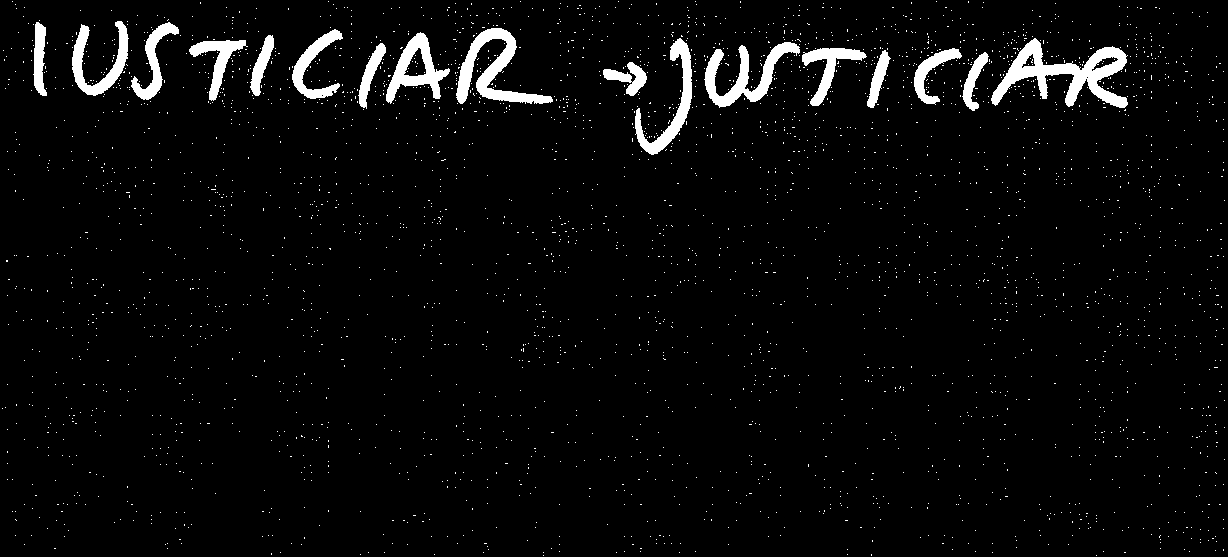 IUSTICIAR → JUSTICIAR